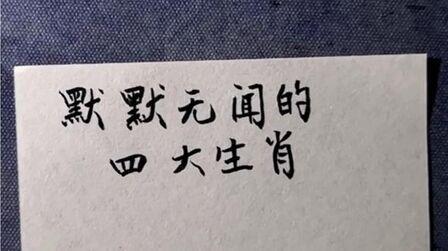 默默无闻的
四大生肖